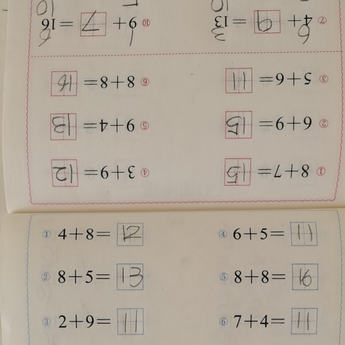 ① 8+7=15 ④ 3+9=12
② 6+9=15 ⑤ 9+4=13
③ 5+6=11 ⑥ 8+8=16
⑦ 4+9=13 ⑩ 9+7=16
① 4+8=12 ④ 6+5=11
② 8+5=13 ⑤ 8+8=16
③ 2+9=11 ⑥ 7+4=11